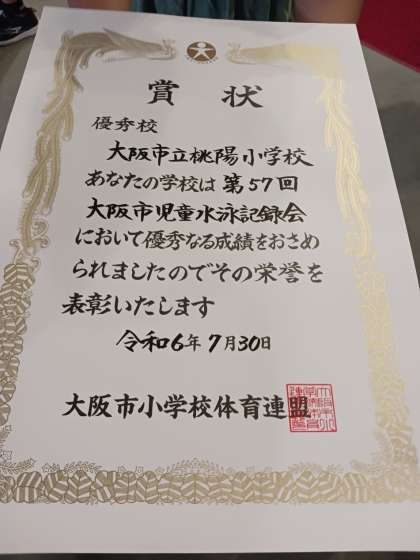 賞状
優秀校
大阪市立桃陽小学校
あなたの学校は第57回
大阪市児童水泳記録会
において優秀なる成績をおさめ
られましたのでその栄誉を
表彰いたします
令和6年7月30日
大阪市小学校体育連盟